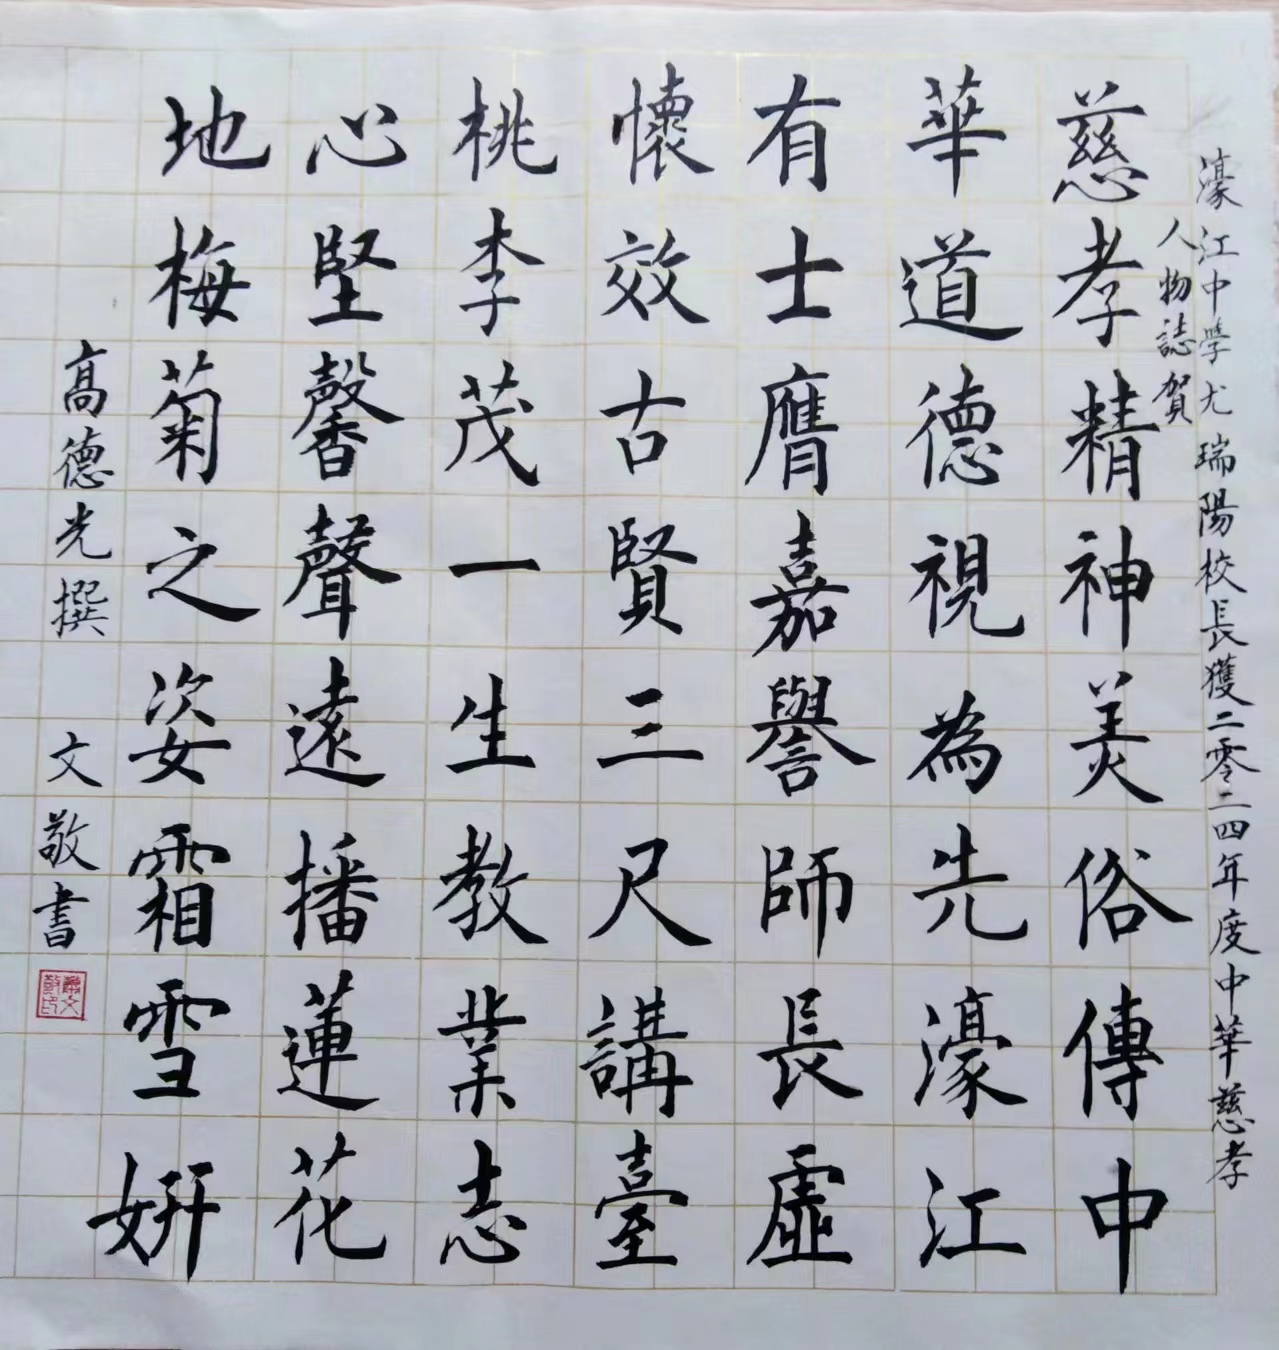 濠江中學尤瑞陽校長獲二零二四年度中華慈孝
人物誌賀
慈孝精神美俗傳中
華道德視為先濠江
有士膺嘉譽師長虛
懷效古賢三尺講臺
桃李茂一生教業志
心堅馨聲遠播蓮花
地梅菊之姿霜雪妍
高德光撰
文敬書